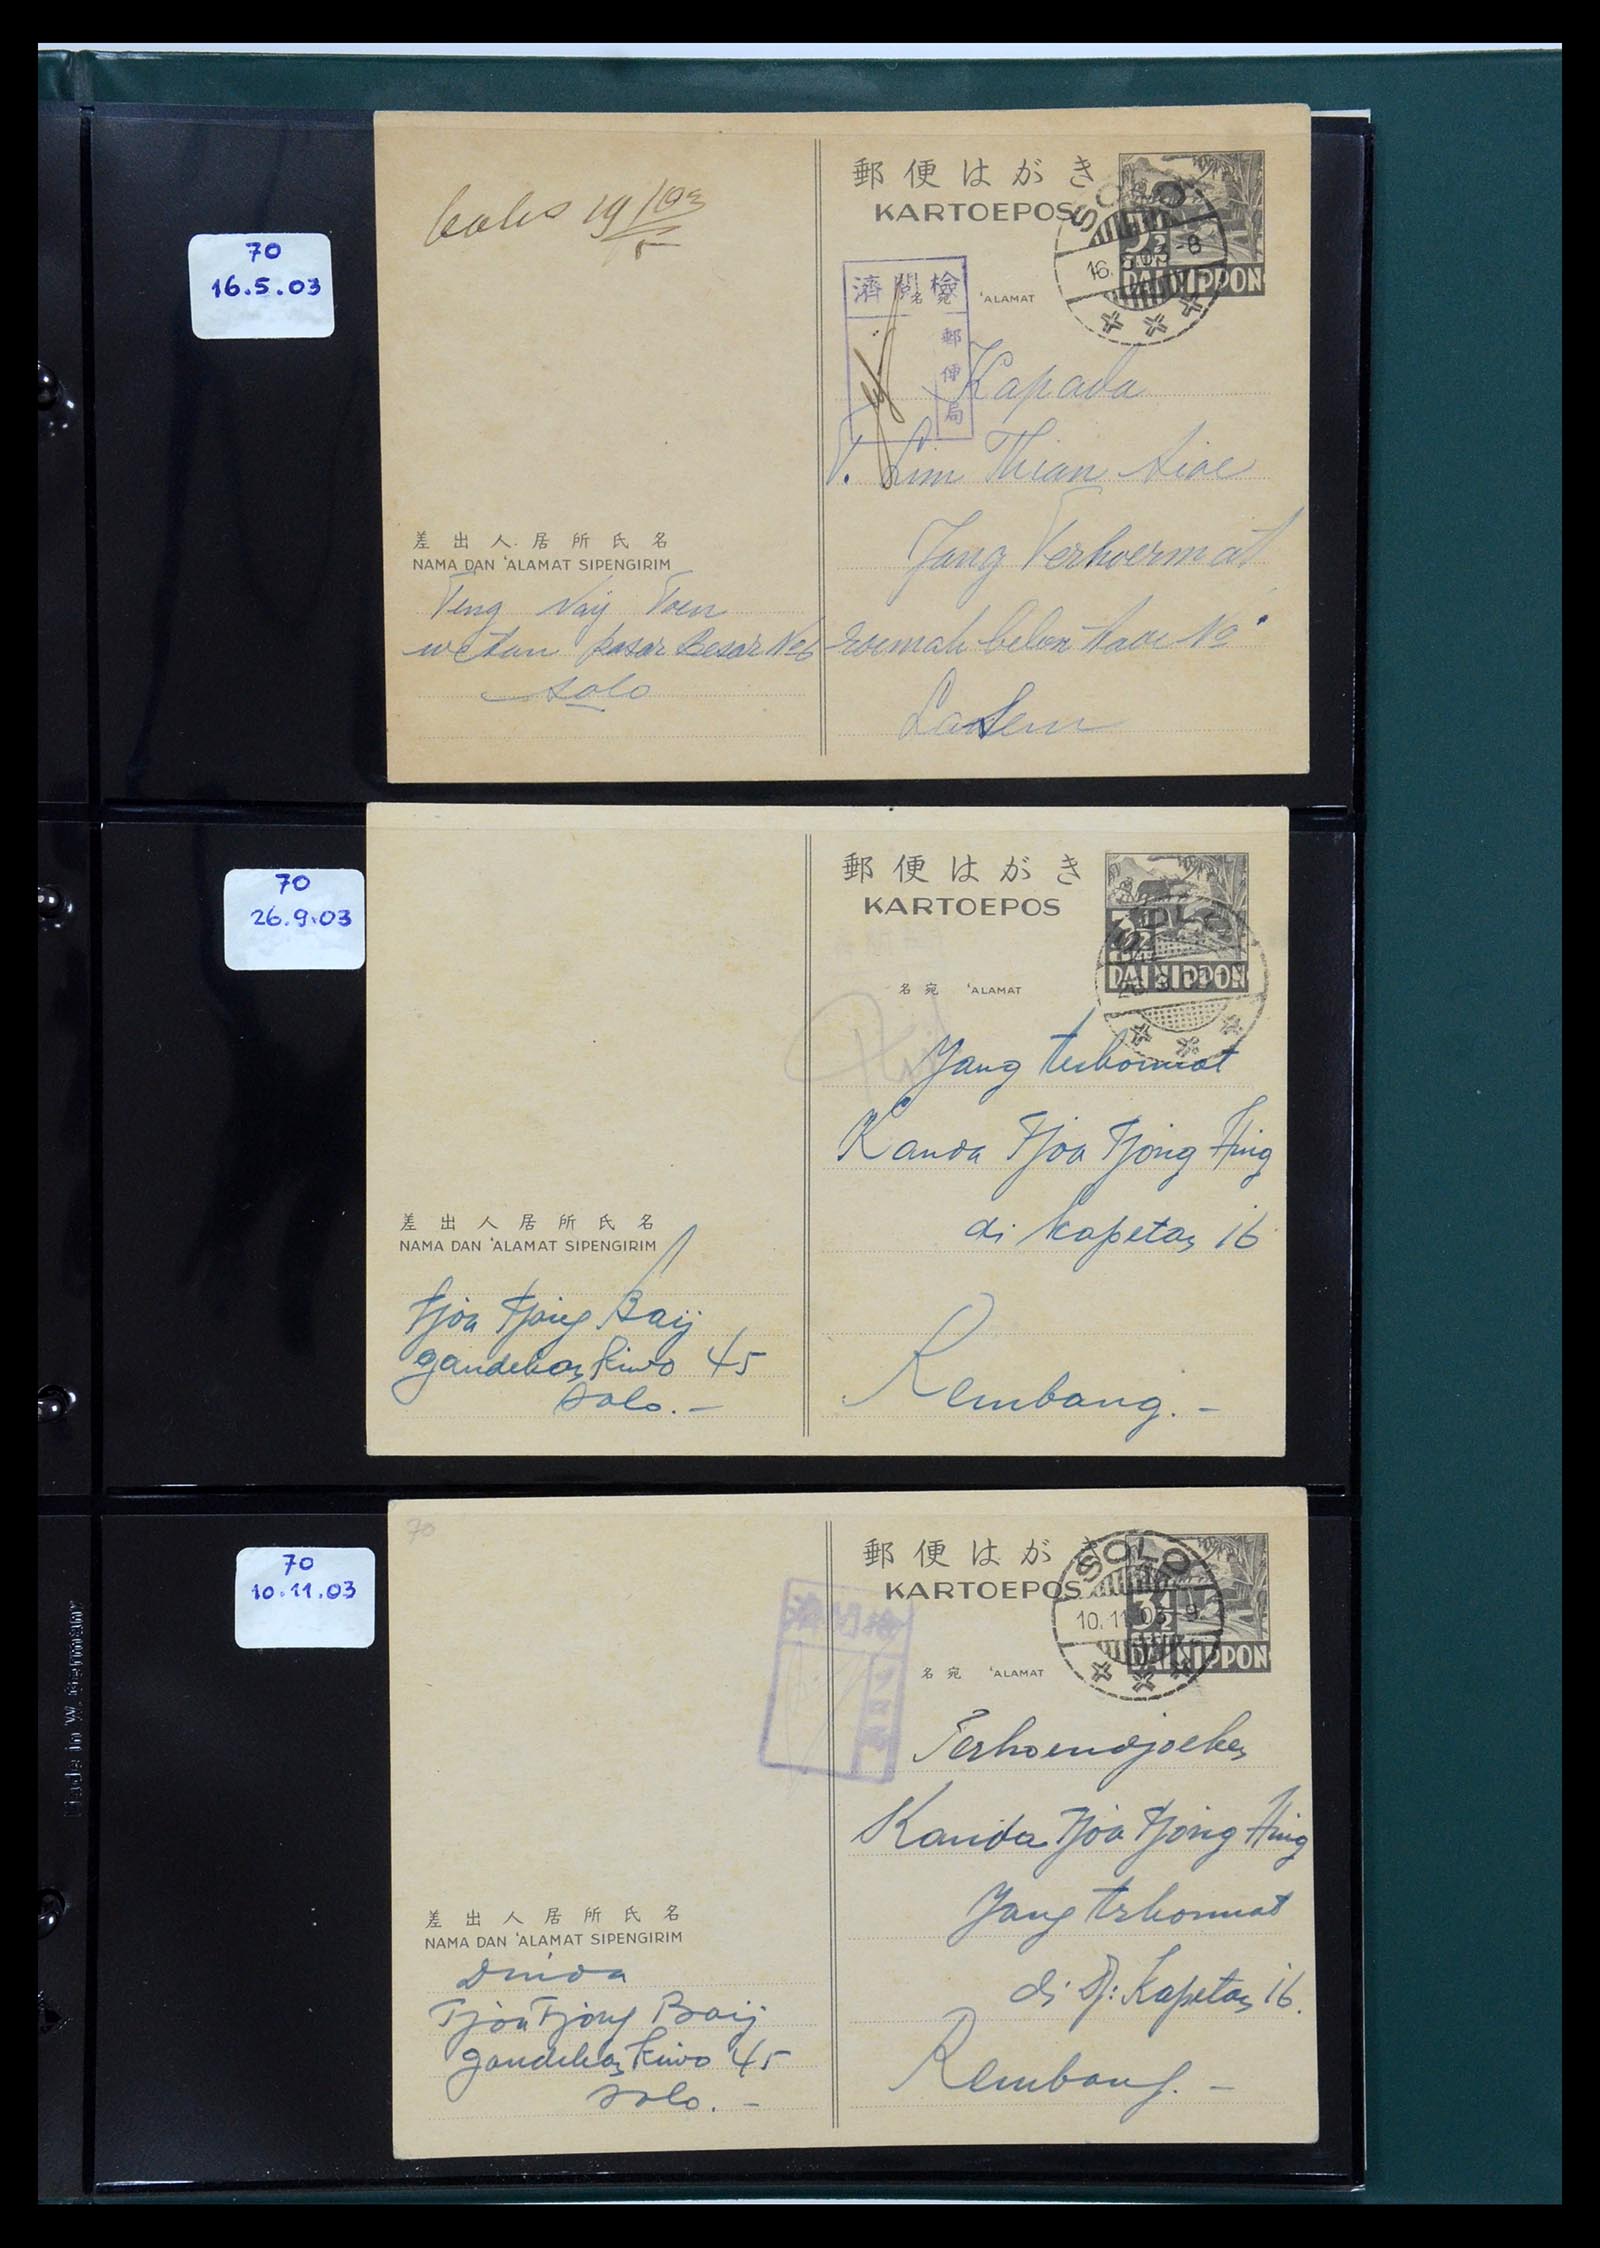 70
16.5.03
bales 19/5/03
郵便はがき
KARTOEPOS
SOLO
16.5.03-8
3½
DAI NIPPON
検閲濟
郵便局
名宛 'ALAMAT
Kapada
T. Lim Thian
Jang Terhoermat
roemah No
Lasem
差出人居所氏名
NAMA DAN 'ALAMAT SIPENGIRIM
Teng Naij Toen
wetan pasar Besar No 6
Solo
70
26.9.03
郵便はがき
KARTOEPOS
SOLO
3½
DAI NIPPON
名宛 'ALAMAT
Jang terhormat
Kanda Tjoa Tjong Hing
di Kapetan 16
Rembang.-
差出人居所氏名
NAMA DAN 'ALAMAT SIPENGIRIM
Tjoa Tjong Baij
gandekan Kiwo 45
Solo.-
70
10.11.03
70
郵便はがき
KARTOEPOS
SOLO
10.11.03 9
3½
DAI NIPPON
検閲濟
ソロ局
名宛 'ALAMAT
Terhoendjoek
Kanda Tjoa Tjong Hing
Jang terhormat
di Dj: Kapetan 16.
Rembang.-
差出人居所氏名
NAMA DAN 'ALAMAT SIPENGIRIM
Dinda
Tjoa Tjong Baij
gandekan Kiwo 45
Solo.-
Made in W.Germany